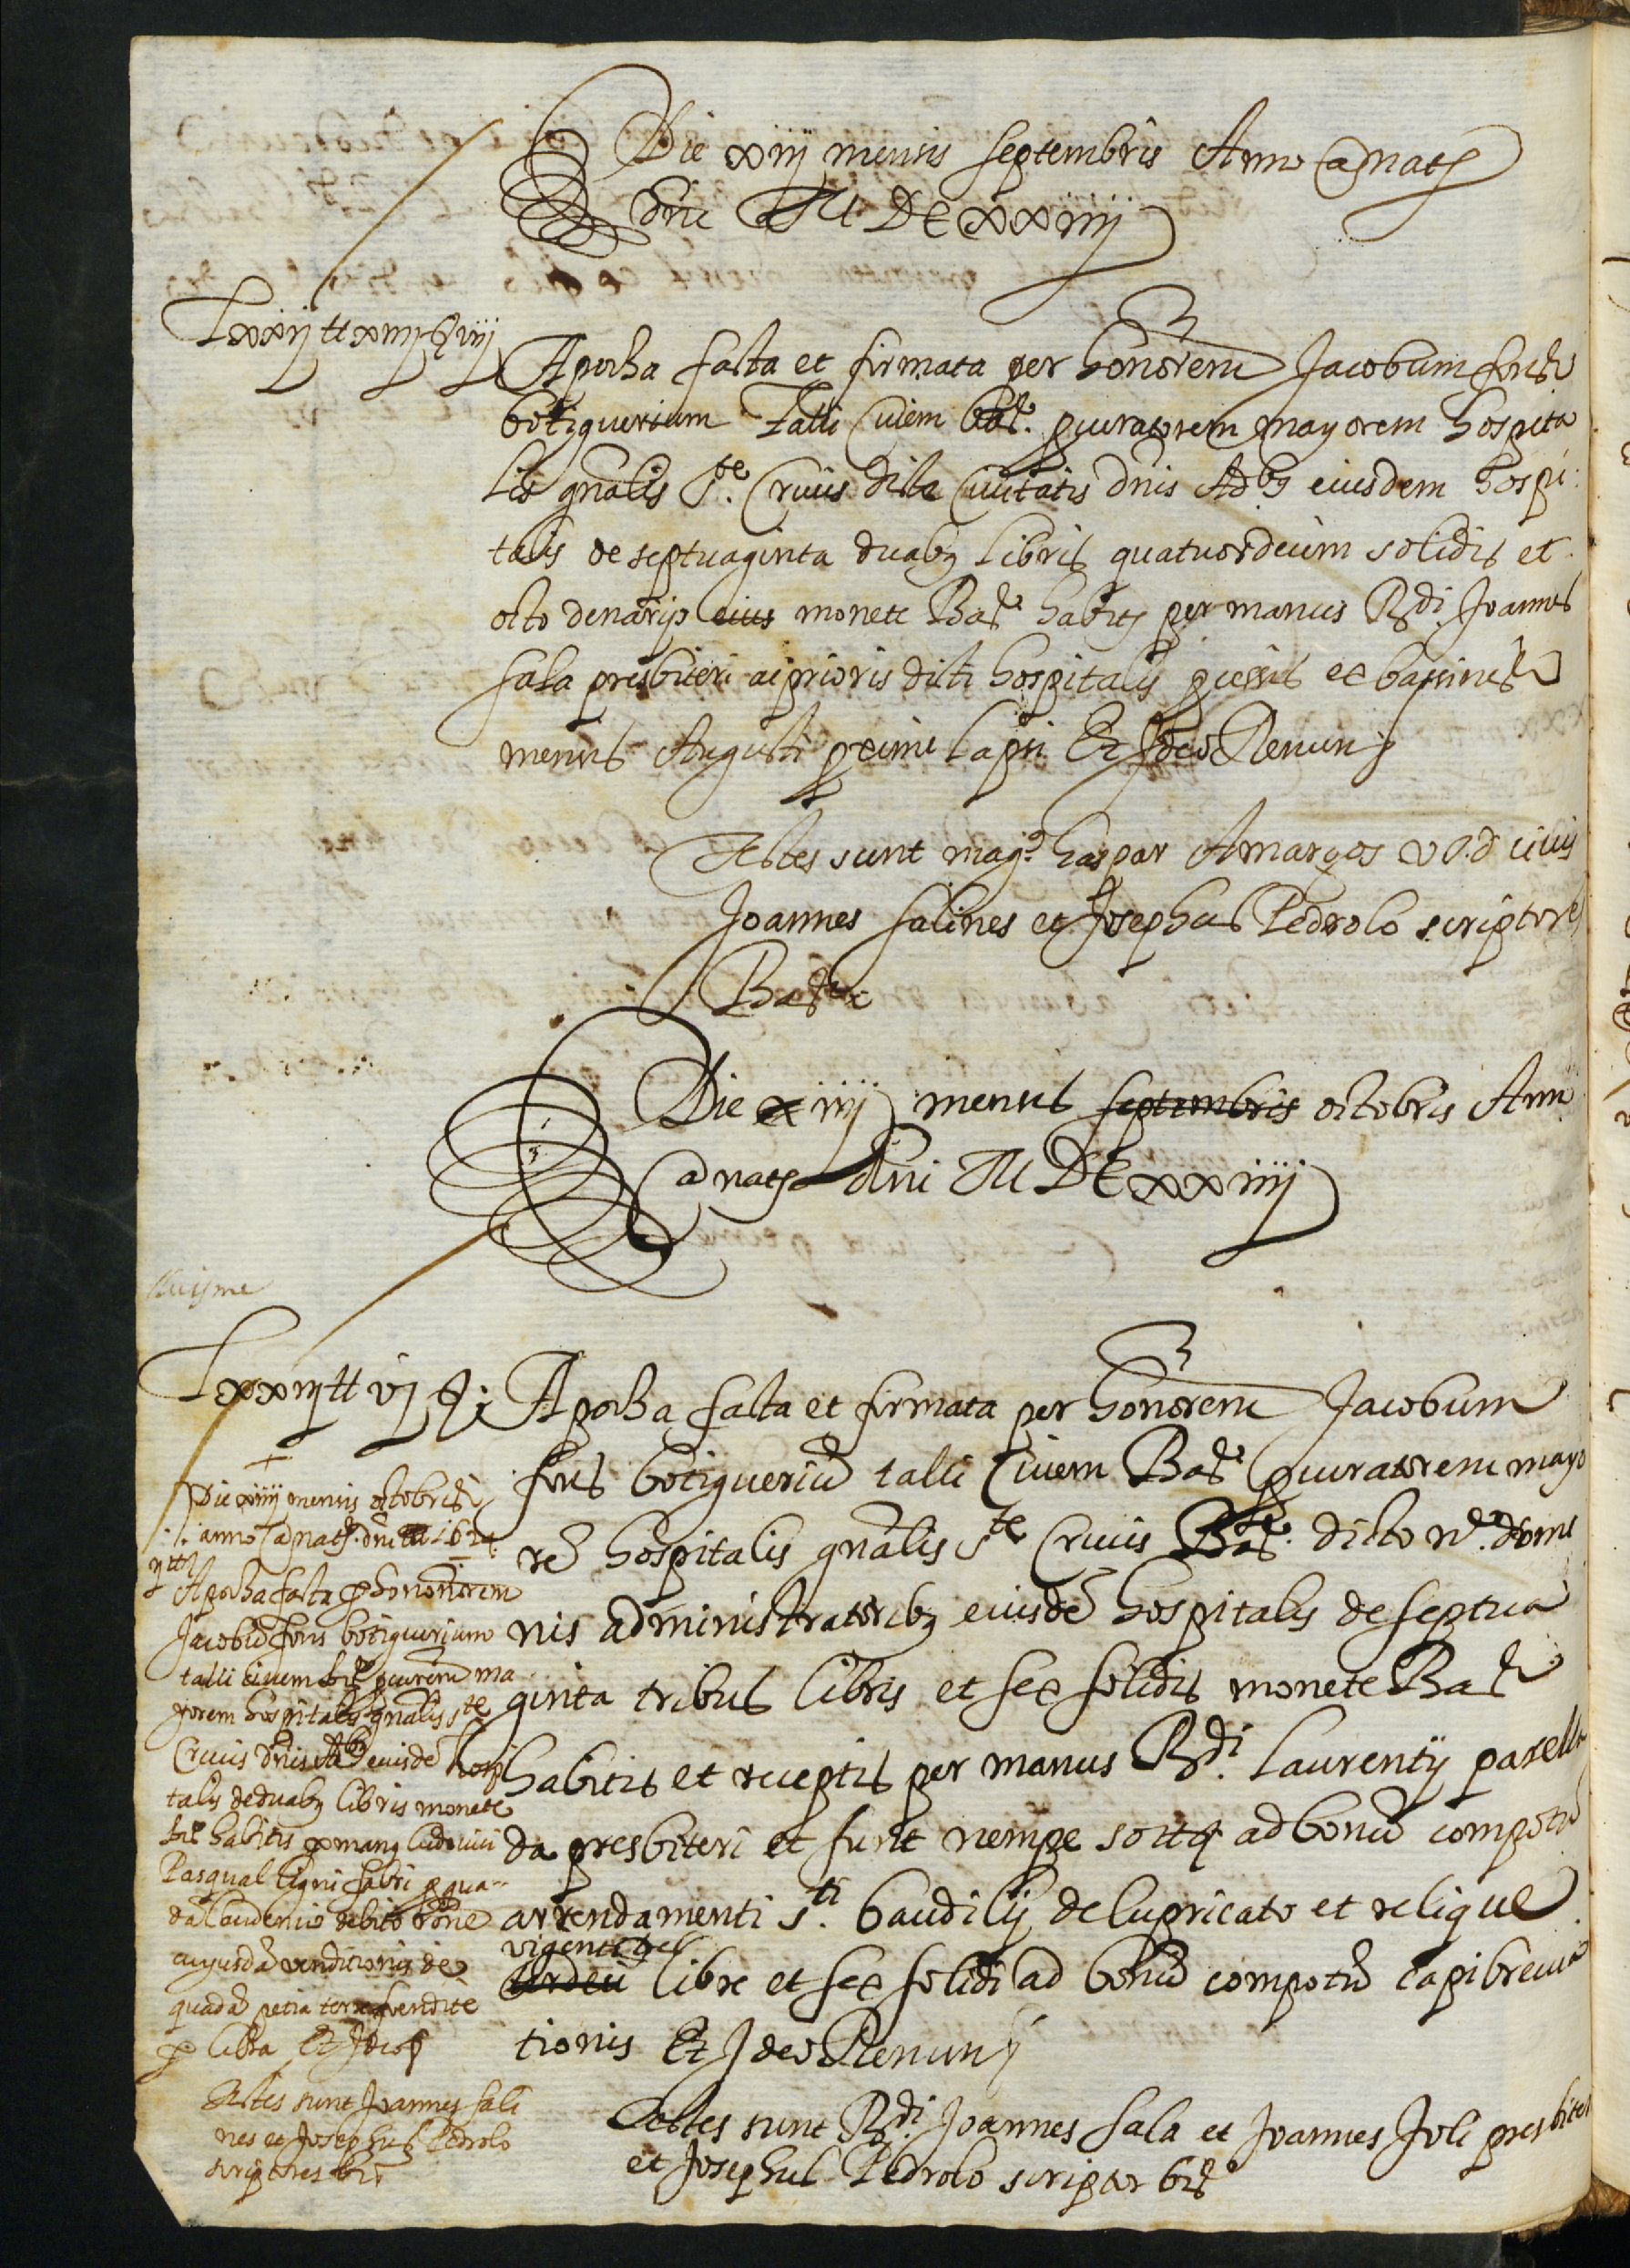 Die xiij mensis septembris Anno a nat.
dni M DC xxiiij
Lxxij ll xiiij s viij
Apocha facta et firmata per honorem Jacobum fons
botiguerium talli Civem Bar. procuratorem mayorem hospita
lis gnalis Ste. Crucis dicte Civitatis dnis Adbus eiusdem hospi:
talis de septuaginta duabus libris quatuordecim solidis et
octo denarijs eius monete Bar. habitis per manus Rdi. Joannis
sala presbiteri ac prioris dicti hospitalis et bassines
mensis Augusti proxime lapsi Et Ideo Renun.
Testes sunt magcus. Gaspar Amargos V.J.d civis
Joannes salines et Josephus Pedrolo scriptores
Barne
Die x iiij mensis septembris octobris Anno
a nat. dni M DC xxiiij
Lxxiij ll vj s
Apocha facta et firmata per honorem Jacobum
fons botigueriu talli Civem Bar. procuratorem mayo
re hospitalis gnalis Ste Crucis Bar. dicto nre. domi
nis administratoribus eiusde hospitalis de septua
ginta tribus libris et sex solidis monete Bar.
habitis et receptis per manus Rdi. Laurentij parella
da presbiteri et sunt nempe 50 ll ad bonu compotu
arrendamenti Sti. baudilij de lupricato et relique
viginti tres
libre et sex solidi ad bonu compotu capibrevia
tionis Et Ideo Renun.
Testes sunt Rdi. Joannes sala et Joannes Joli presbiteri
et Josephus Pedrolo scriptor bar.
Die xiiij mensis octobris
anno a nat. dni M 1624
ij ll
Apocha facta p honorem
Jacobu fons botiguerium
talli civem bar. procurem ma
yorem hospitalis gnalis ste
Crucis dnis Adbus eiusde hospi
talis de duabus libris monete
bar. habitis p manus ludovici
Pasqual ligni fabri p qua-
da laudemio debito rone
cuyusda venditionis de
quada petia terre vendite
p libra Et Ideo
Testes sunt Joannes sali
nes et Josephus Pedrolo
scriptores bar.